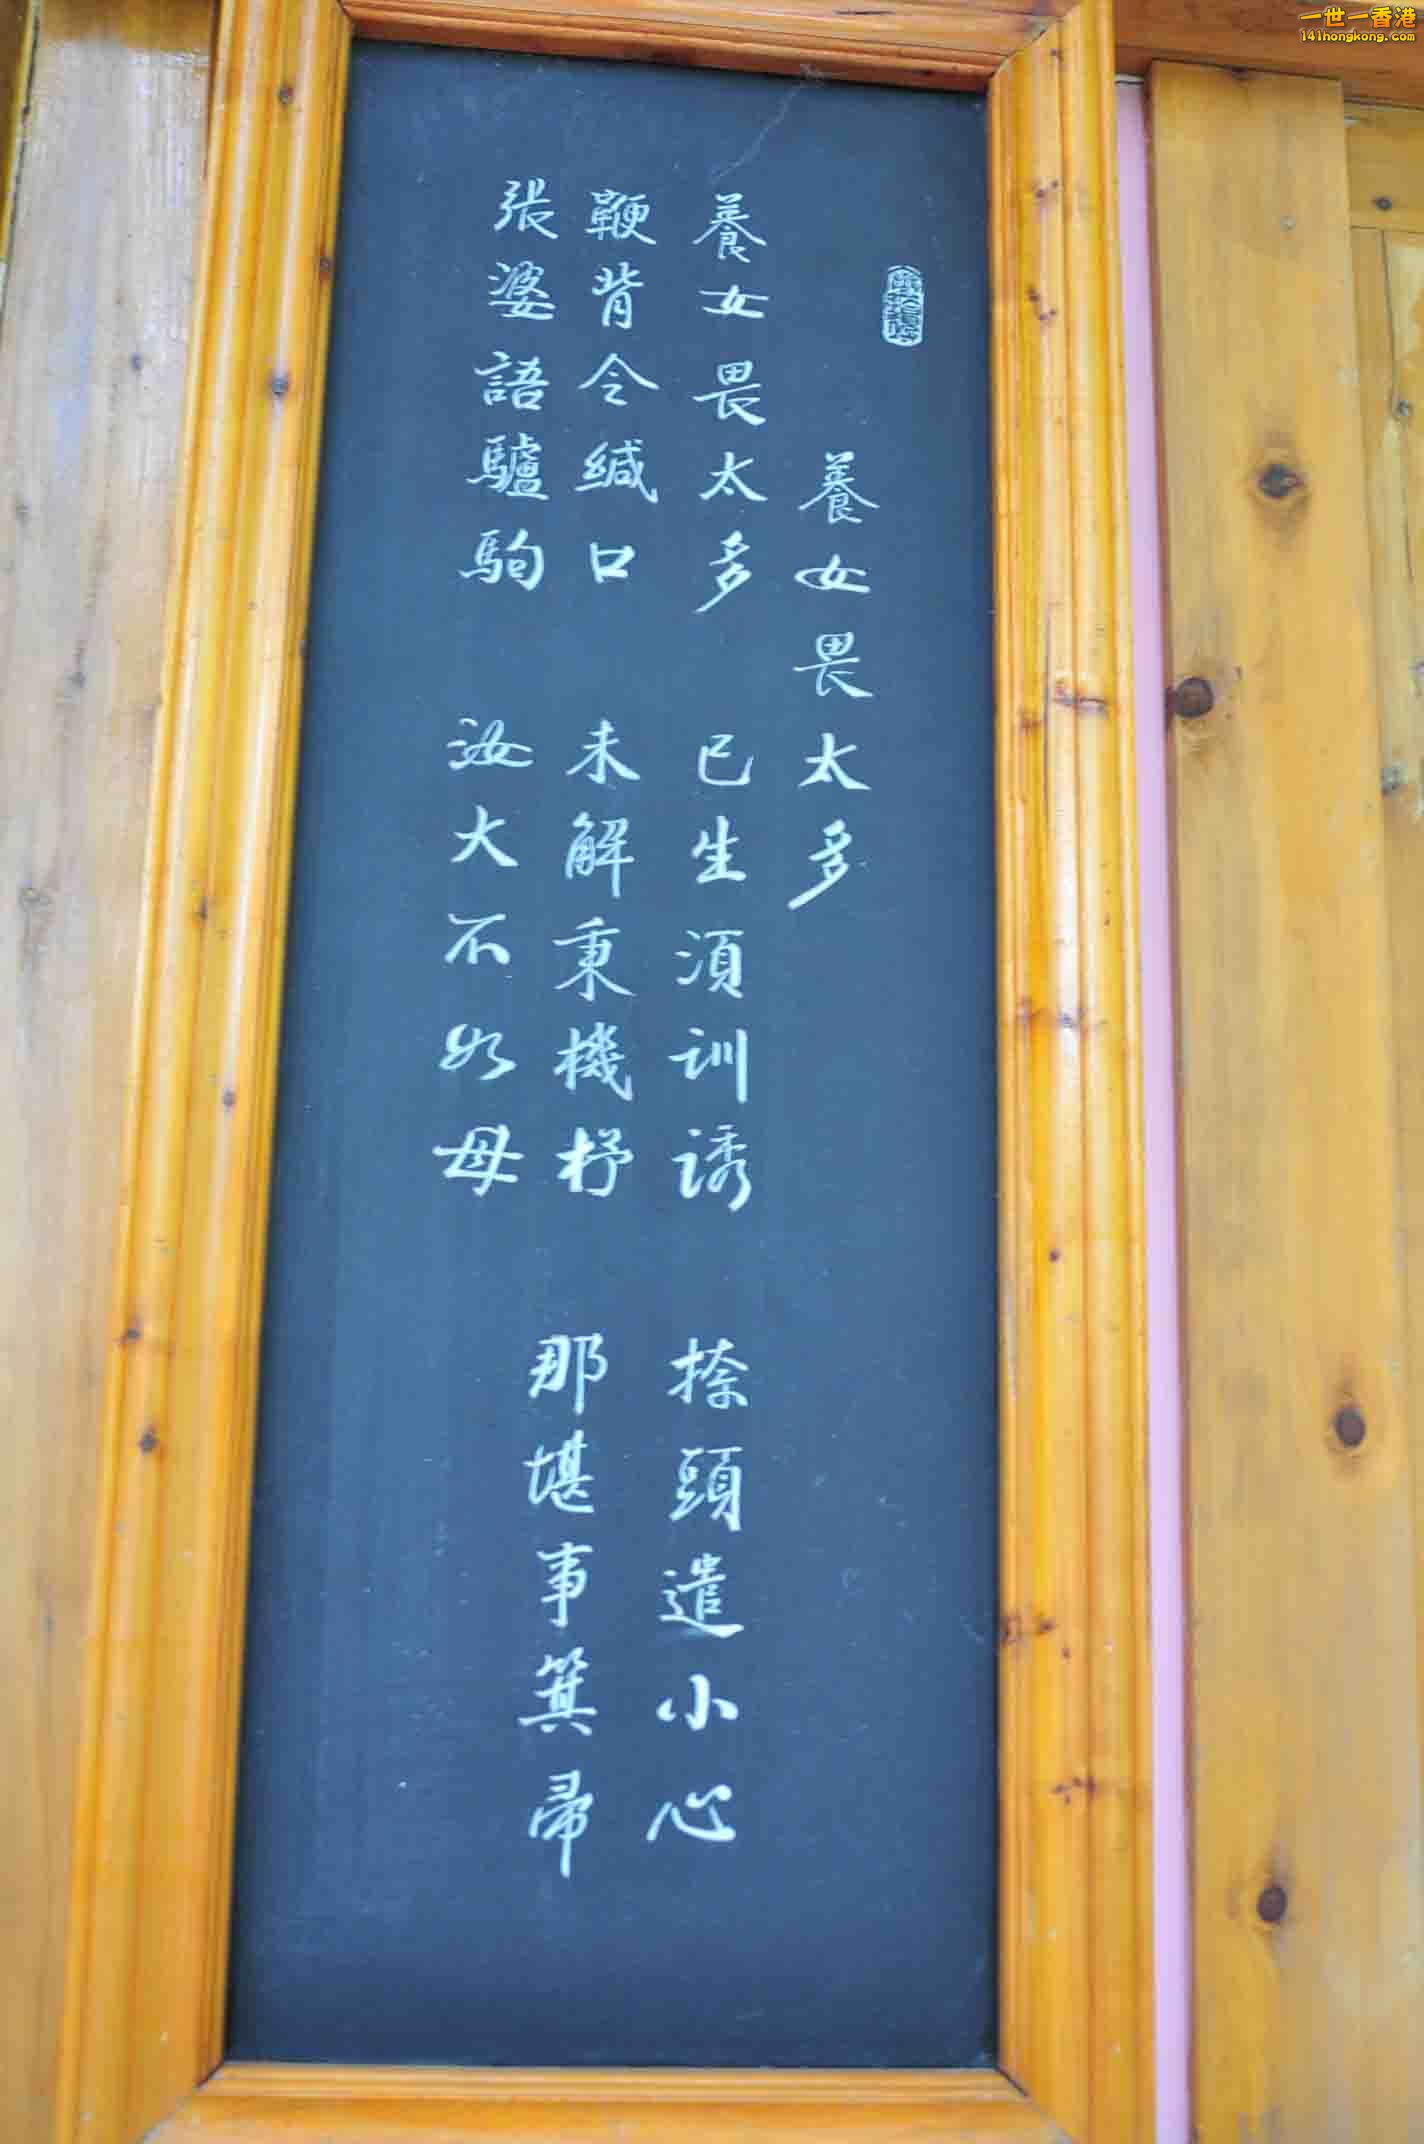 養女畏太多
養女畏太多 已生須訓誘 捺頭遣小心
鞭背令緘口 未解秉機杼 那堪事箕帚
張婆語驢駒 汝大不如母
一世一香港
141hongkong.com